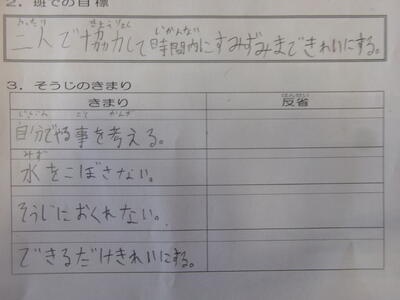 2. 班での目標
ふたり きょうりょく じかんない
二人で協力して時間内にすみずみまできれいにする。
3. そうじのきまり
きまり
はんせい
反省
じぶん こと かんが
自分でやる事を考える。
みず
水をこぼさない。
そうじにおくれない。
できるだけきれいにする。